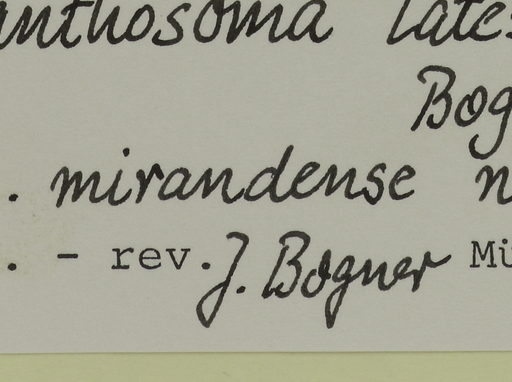 anthosoma late
Bog
. mirandense n
. - rev. J. Bogner Mü